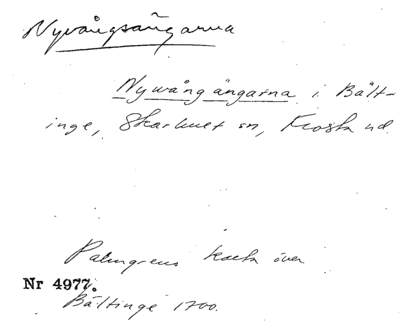 Nyvångsängarna
Nywångängarna i Bält-
inge, Skarhult sn, Frosta hd.
Palmgrens karta över
Nr 4977.
Bältinge 1700.